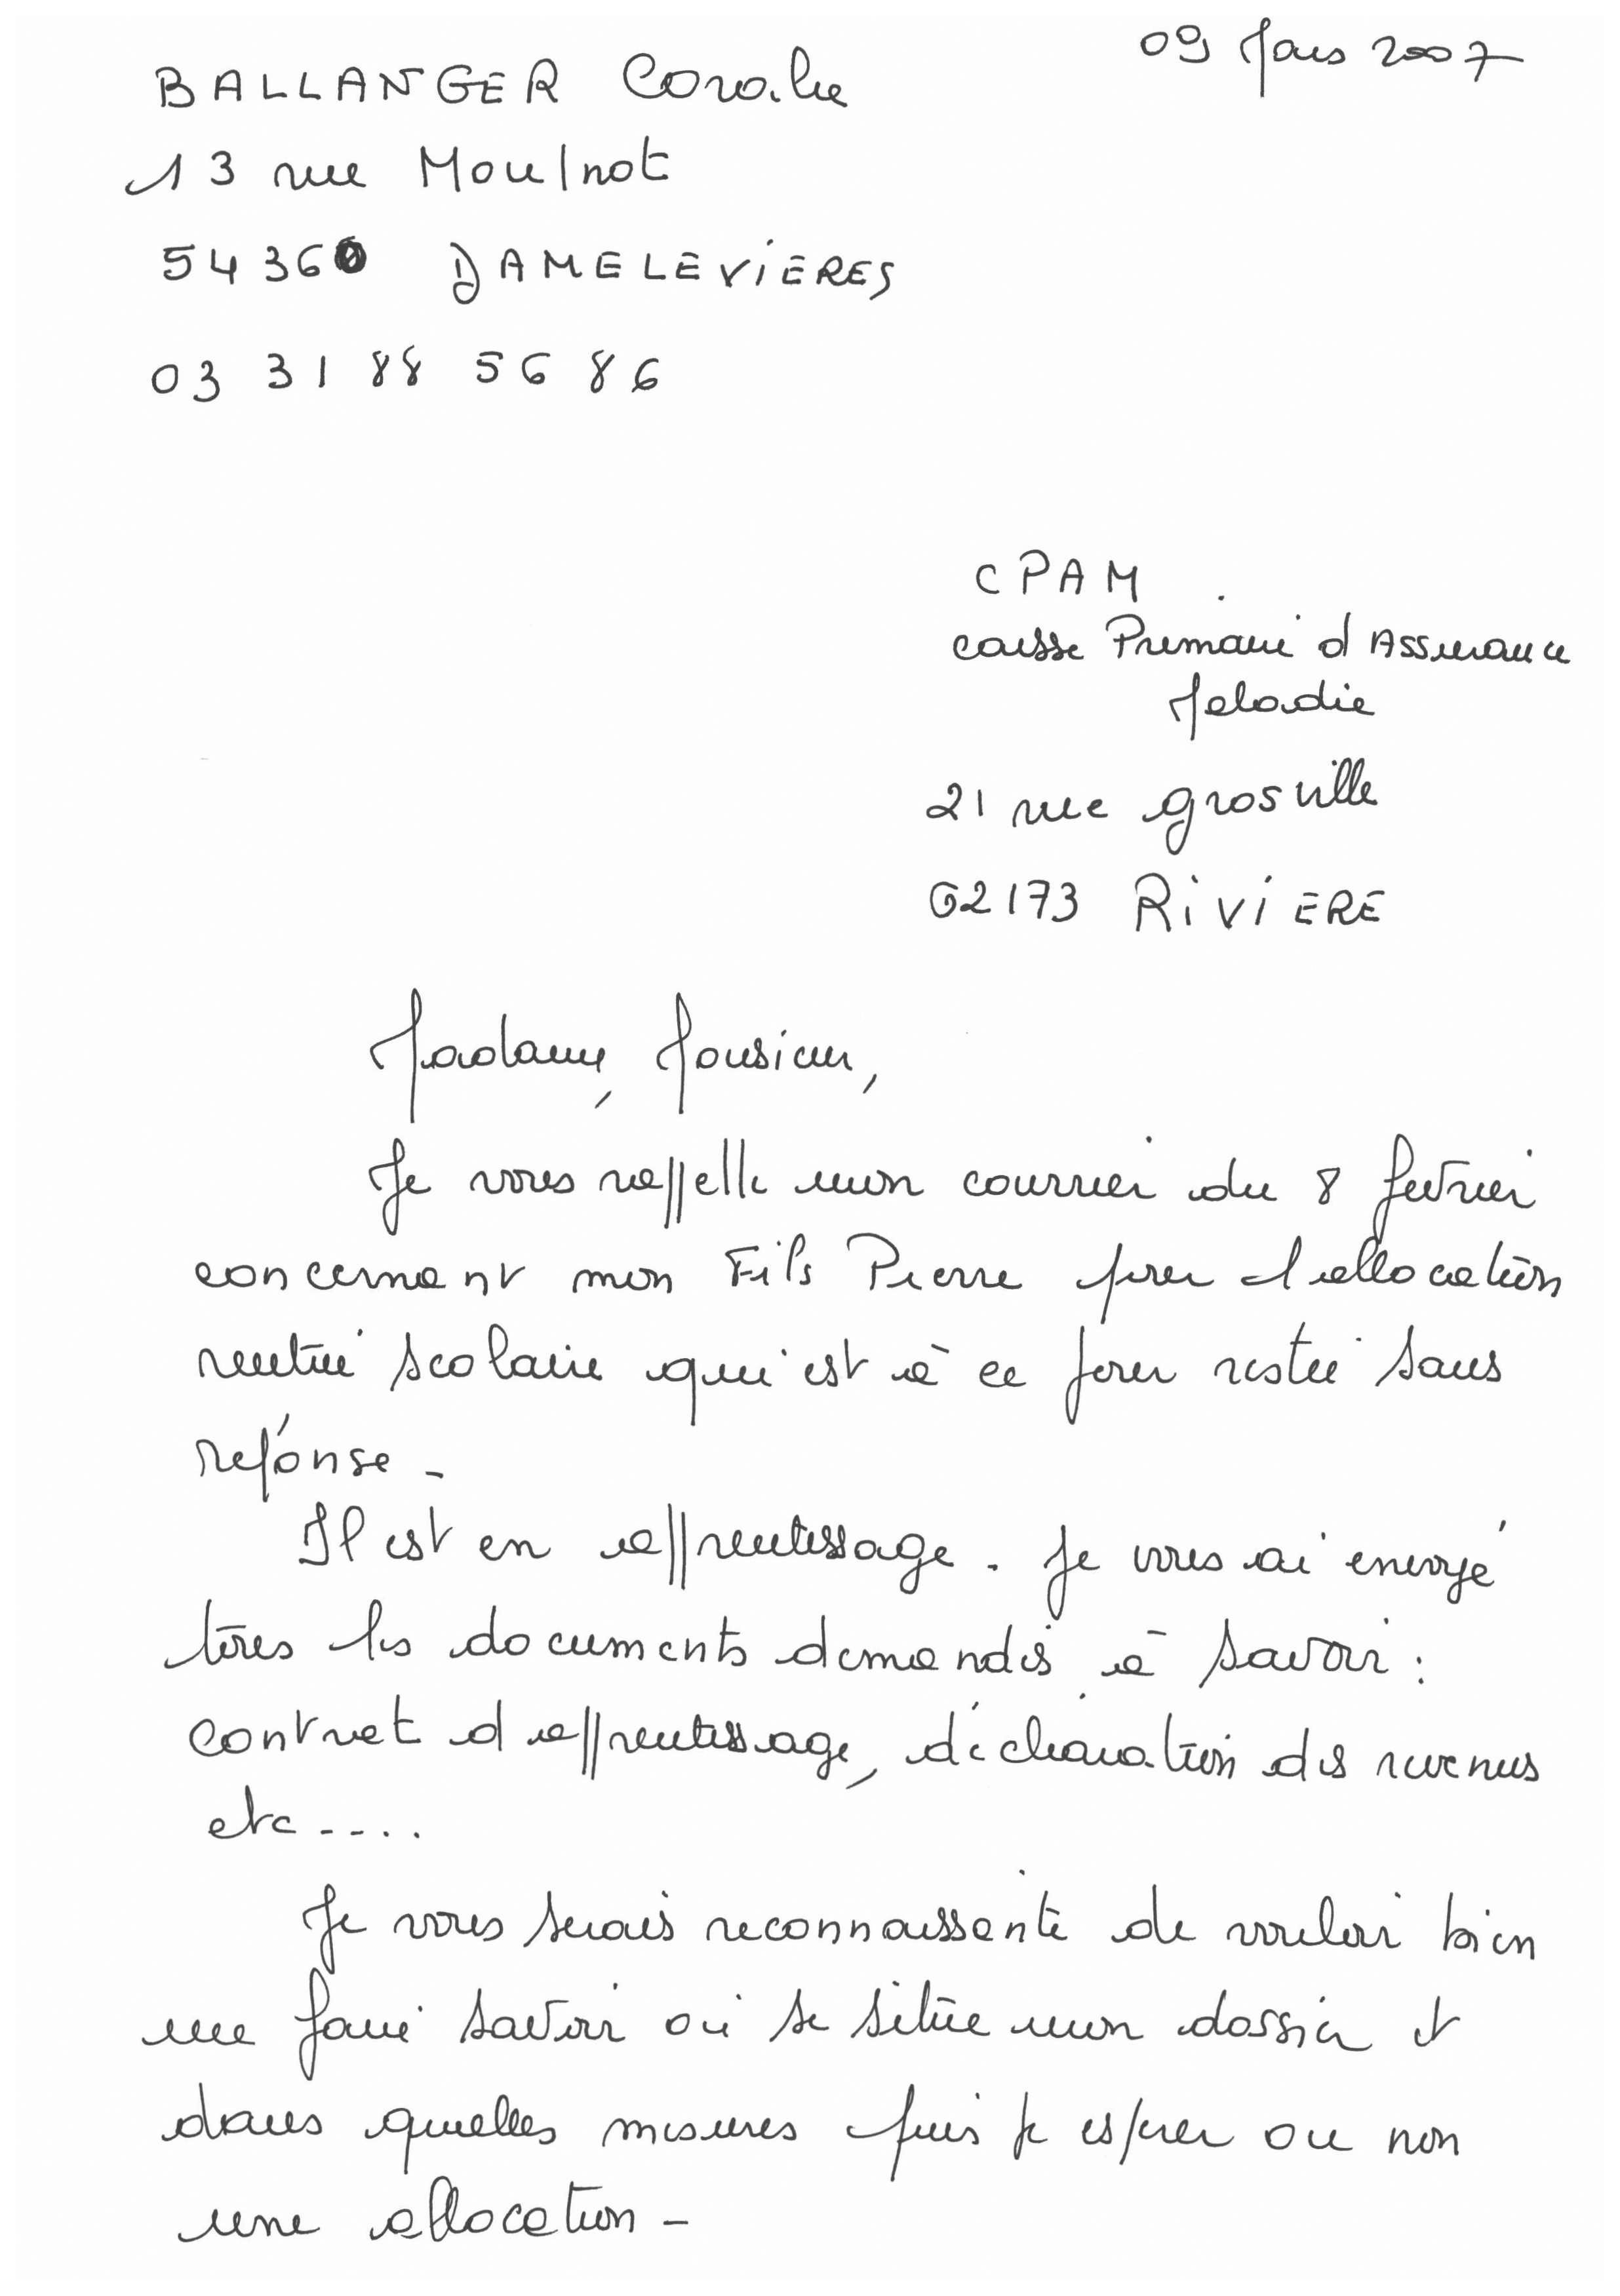 09 Mars 2007
BALLANGER Coralie
13 rue Moulnot
54360 DAMELEVIERES
03 31 88 56 86
CPAM
caisse Primaire d Assurance
Maladie
21 rue grosville
62173 RIVIERE
Madame, Monsieur,
Je vous rappelle mon courrier du 8 fevrier
concernant mon Fils Pierre pour l'allocation
rentrée scolaire qui est à ce jour restée sans
reponse -
Il est en apprentissage. Je vous ai envoyé
tous les documents demandés à savoir :
contrat d apprentissage, déclaration des revenus
etc ----
Je vous serais reconnaissante de vouloir bien
me faire savoir où se situe mon dossier et
dans quelles mesures puis je esperer ou non
une allocation -